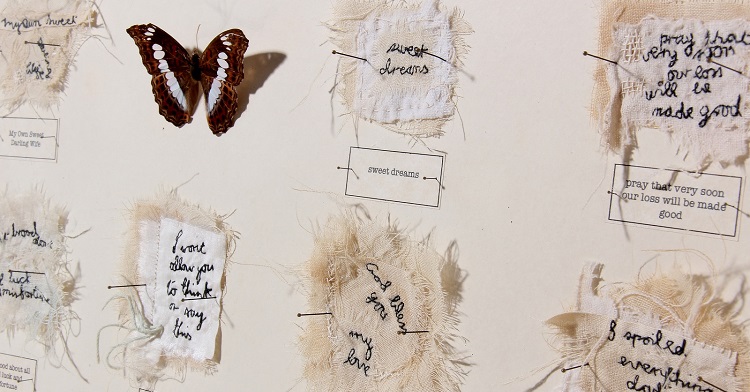 my own sweet
wife
My Own Sweet
Darling Wife
sweet
dreams
sweet dreams
pray that
very soon
our loss
will be
made good
pray that very soon
our loss will be made
good
brood
luck
misfortune
ood about all
luck and
fortune
I wont
allow you
to think
or say
this
God bless
you
my
love
I spoiled
everything